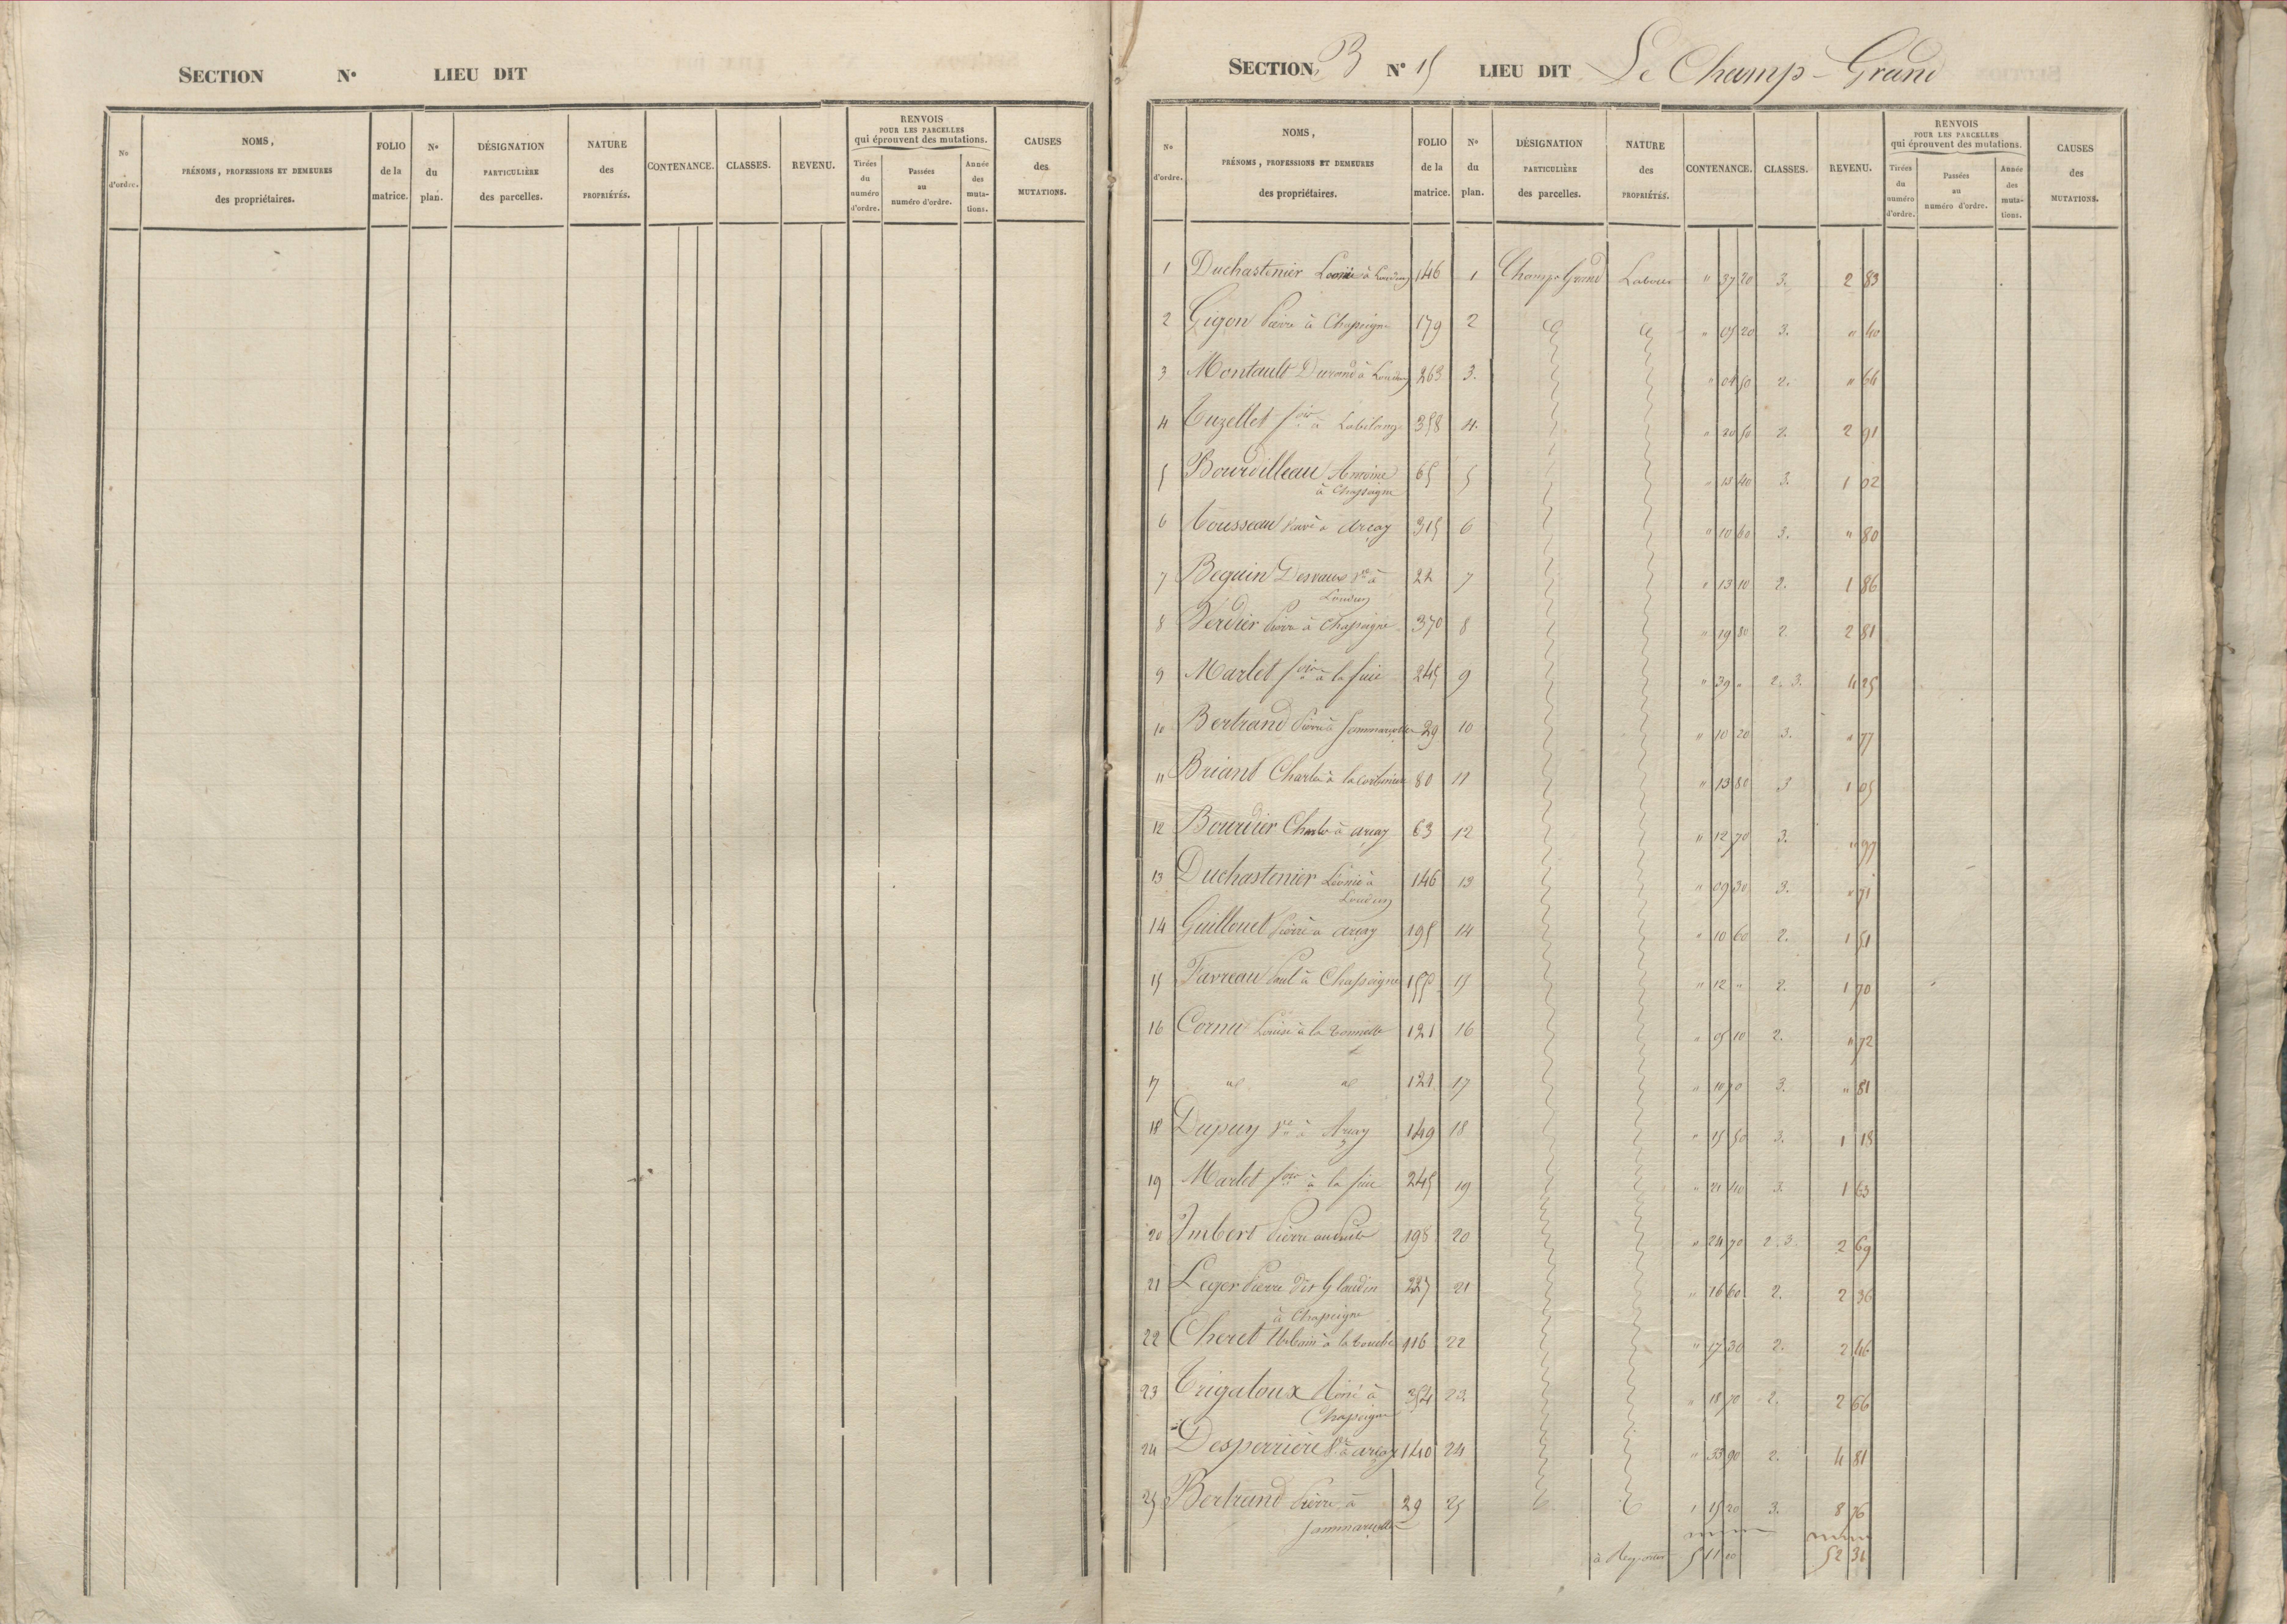 SECTION N° LIEU DIT
N° d'ordre.
NOMS, PRÉNOMS, PROFESSIONS ET DEMEURES des propriétaires.
FOLIO de la matrice.
N° du plan.
DÉSIGNATION PARTICULIÈRE des parcelles.
NATURE des PROPRIÉTÉS.
CONTENANCE.
CLASSES.
REVENU.
RENVOIS POUR LES PARCELLES qui éprouvent des mutations.
Tirées du numéro d'ordre.
Passées au numéro d'ordre.
Année des mutations.
CAUSES des MUTATIONS.
SECTION B N° 15 LIEU DIT Le Champ-Grand
N° d'ordre.
NOMS, PRÉNOMS, PROFESSIONS ET DEMEURES des propriétaires.
FOLIO de la matrice.
N° du plan.
DÉSIGNATION PARTICULIÈRE des parcelles.
NATURE des PROPRIÉTÉS.
CONTENANCE.
CLASSES.
REVENU.
RENVOIS POUR LES PARCELLES qui éprouvent des mutations.
Tirées du numéro d'ordre.
Passées au numéro d'ordre.
Année des mutations.
CAUSES des MUTATIONS.
1 Duchastenier Léonie à Loudun 146 1 Champ Grand Labour " 37 20 3. 2 83
2 Gigon Pierre à Chassigne 179 2 " 05 20 3. " 40
3 Montault Durand à Loudun 263 3. " 04 50 2. " 64
4 Tuzellet 358 4. " 20 50 2. 2 91
5 Bourdilleau Antoine à Chassigne 65 5 " 13 40 3. 1 02
6 Tousseau à Arcay 315 6 " 10 60 3. " 80
7 Beguin Desvaux Ve à Loudun 22 7 " 13 10 2. 1 86
8 Verdier Pierre à Chassigne 370 8 " 19 80 2 2 81
9 Marlet à la fuie 245 9 " 39 " 2. 3. 4 25
10 Bertrand Pierre à Sammarcolle 29 10 " 10 20 3. " 77
11 Briant Charles 80 11 " 13 80 3 1 05
12 Bourdier Charles à Arcay 63 12 " 12 70 3. " 97
13 Duchastenier Léonie à Loudun 146 13 " 09 30 3. " 71
14 Guillouet Pierre à Arcay 195 14 " 10 60 2. 1 51
15 Favreau Paul à Chassigne 15 " 12 " 2. 1 70
16 Cornu Louise à la tonnelle 121 16 " 05 10 2. " 72
17 id id 121 17 " 10 70 3. " 81
18 Dupuy Ve à Arcay 149 18 " 15 50 3. 1 18
19 Marlet à la fuie 245 19 " 21 40 3. 1 63
20 Imbert Pierre 198 20 " 24 70 2. 3. 2 69
21 Leger Pierre dit Glaudin à Chassigne 227 21 " 16 60 2. 2 36
22 Cheret Urbain à la touche 116 22 " 17 30 2. 2 46
23 Trigatoux René à Chassigne 354 23 " 18 70 2. 2 66
24 Desperriere Ve à Arcay 140 24 " 33 90 2. 4 81
25 Bertrand Pierre à Sammarcolle 29 25 1 15 20 3. 8 76
à Reporter 5 11 20 52 31